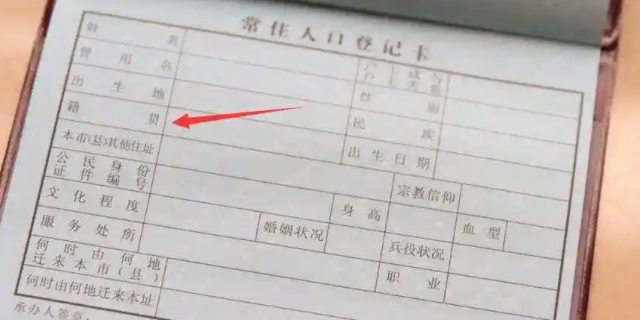 常住人口登记卡
姓名 户主或与户主关系
曾用名 性别
出生地 民族
籍贯 出生日期
本市(县)其他住址 宗教信仰
公民身份证件编号 身高 血型
文化程度 婚姻状况 兵役状况
服务处所 职业
何时由何地迁来本市(县)
何时由何地迁来本址
承办人签章